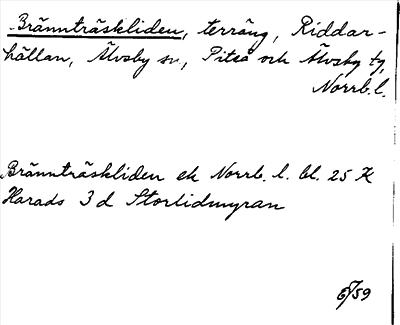 Brännträskliden, terräng, Riddar-
hällan, Älvsby sn, Piteå och Älvsby tg,
Norrb. l.
Brännträskliden ek Norrb. l. bl. 25 K
Harads 3 d Storlidmyran
6/59